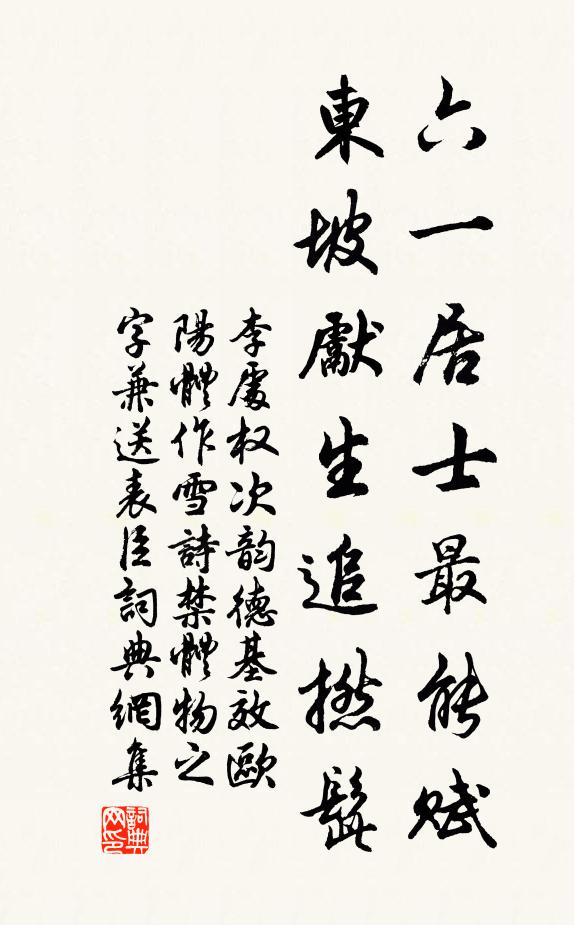 六一居士最能賦
東坡獻生追撚髭
李處权次韵德基效歐
陽體作雪詩禁體物之
字兼送表臣詞典網集
詞典
网印